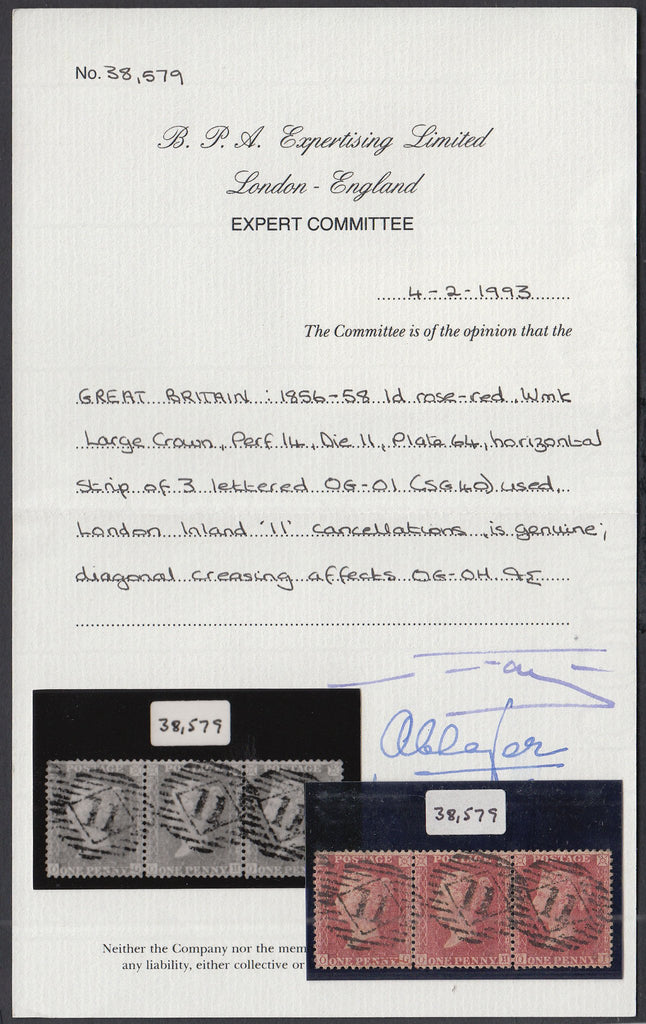 No. 38,579
B. P. A. Expertising Limited
London - England
EXPERT COMMITTEE
4-2-1993
The Committee is of the opinion that the
GREAT BRITAIN : 1856-58 1d rose-red, Wmk
Large Crown, Perf 14, Die 11, Plate 64, horizontal
strip of 3 lettered OG-OI (SG40) used,
London Inland '11' cancellations, is genuine;
diagonal creasing affects OG-OH
38,579
11 11 11
ONE PENNY ONE PENNY ONE PENNY
38,579
POSTAGE POSTAGE POSTAGE
11 11 11
O ONE PENNY G O ONE PENNY H O ONE PENNY I
Neither the Company nor the mem
any liability, either collective or